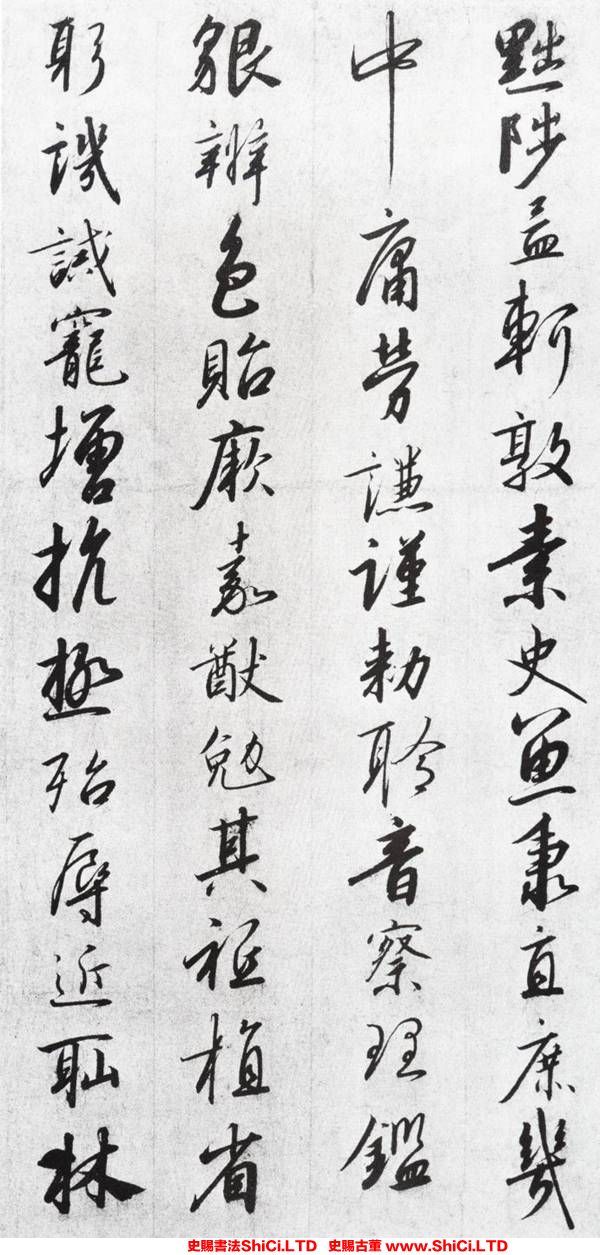 黜陟孟軻敦素史魚秉直庶幾
中庸勞謙謹勅聆音察理鑑
貌辨色貽厥嘉猷勉其祗植省
躬譏誡寵增抗極殆辱近耻林
史賜書法ShiCi.LTD 史賜古董 www.ShiCi.LTD